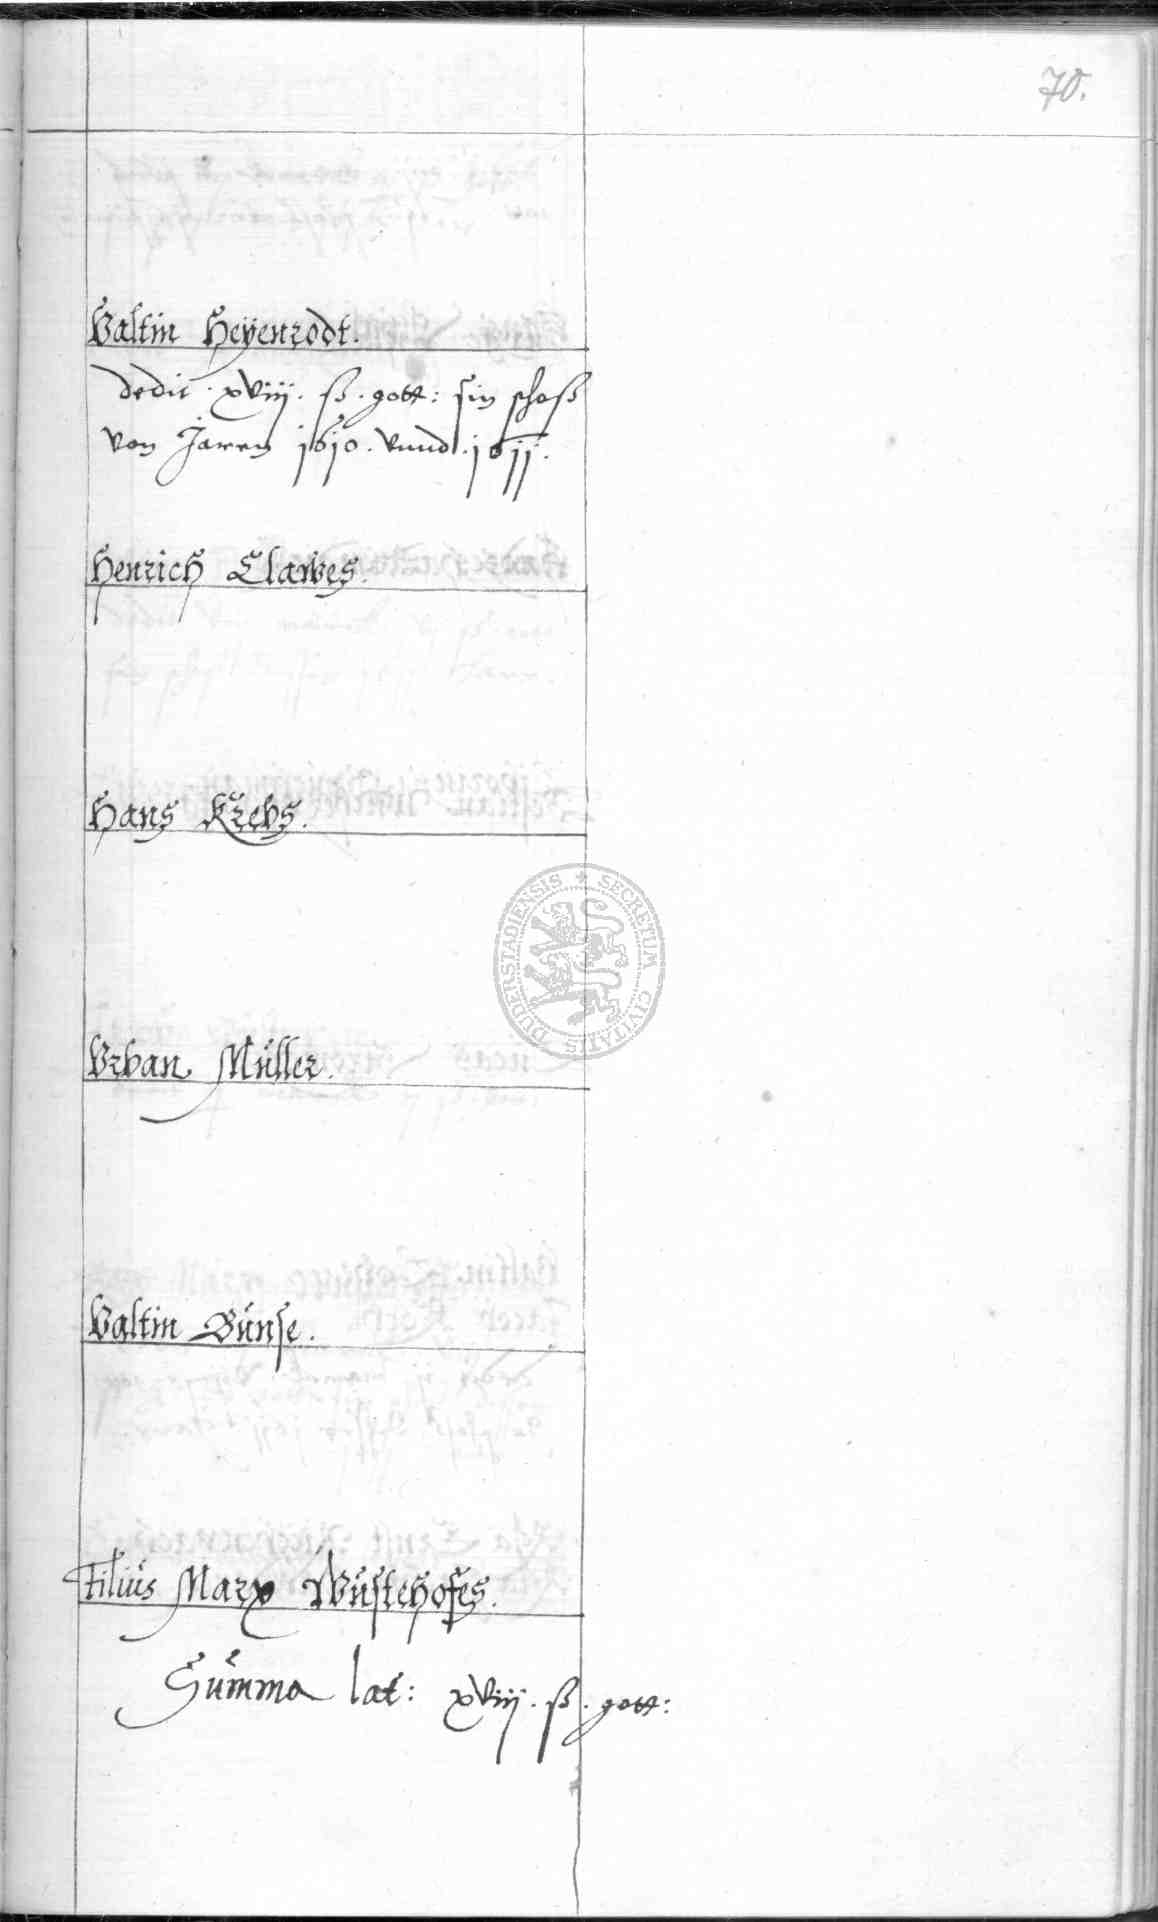 70.
Valtin Heÿenrodt.
dedit . xviij . ß . gott: sin schoß
von Jaren 1610 . vnnd . 1611.
Henrich Clawes.
Hans Krebs.
SECRETUM CIVITATIS DUDERSTADIENSIS
Vrban Müller.
Valtin Bünse.
Filius Marx Wüstehofes.
Summa lat: xviij . ß . gott: